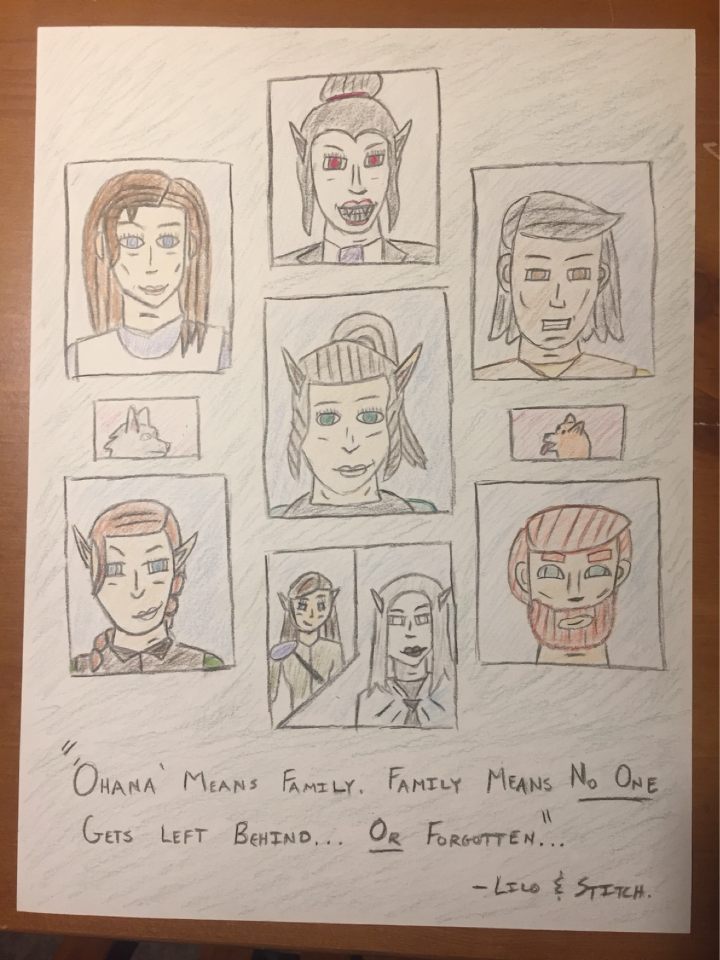 "'Ohana' Means Family. Family Means No One
Gets Left Behind... Or Forgotten"...
- Lilo & Stitch.